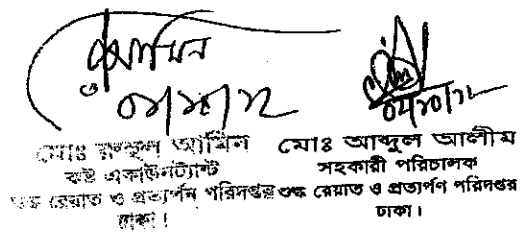 মোঃ রুহুল আমিন
কষ্ট একাউনট্যান্ট
শুল্ক রেয়াত ও প্রত্যর্পন পরিদপ্তর
ঢাকা।
মোঃ আব্দুল আলীম
সহকারী পরিচালক
শুল্ক রেয়াত ও প্রত্যর্পণ পরিদপ্তর
ঢাকা।